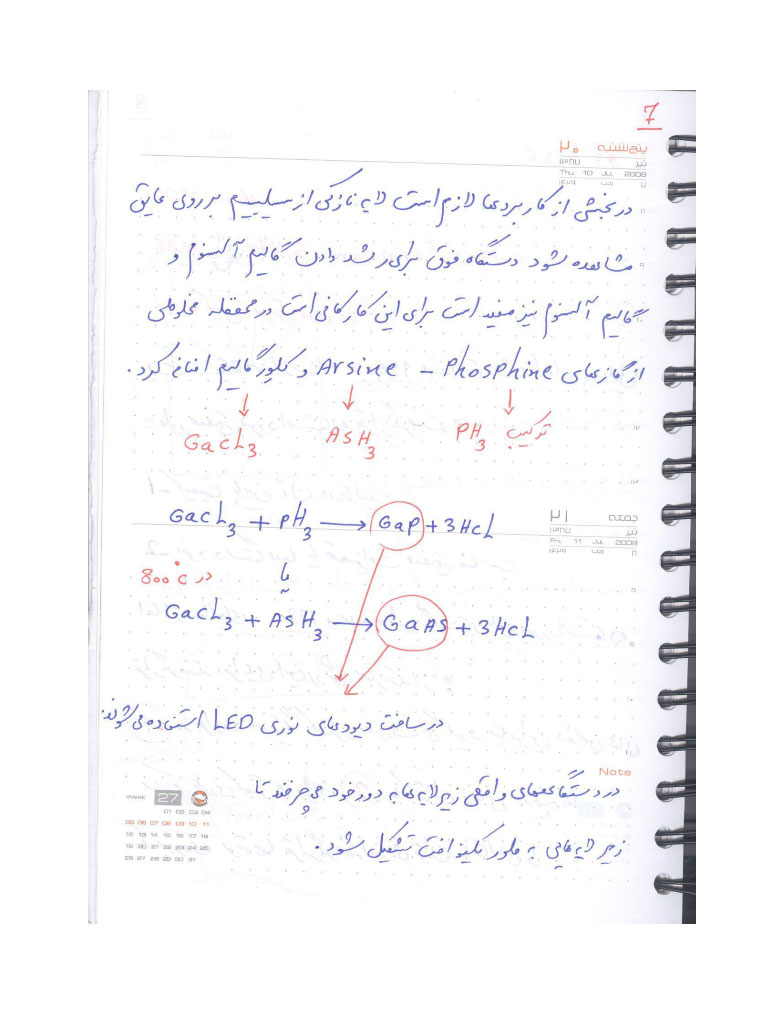 7
پنج‌شنبه ۲۰
تیر ۱۳۸۷
Thu. 10 Jul. 2008
در بخشی از کاربردها لازم است لایه نازکی از سیلیسیم بر روی عایق
مشاهده شود دستگاه فوق برای رشد دادن گالیم آلسنوم و
گالیم آلسنوم نیز مفید است برای این کار کافی است در محفظه مخلوطی
از گازهای Phosphine - Arsine و کلور گالیم اضافه کرد.
ترکیب PH3 ASH3 GaCL3
جمعه ۲۱
تیر ۱۳۸۷
Fri. 11 Jul. 2008
GaCL3 + PH3 → GaP + 3HCL
در 800°C یا
GaCL3 + ASH3 → GaAS + 3HCL
در ساخت دیودهای نوری LED استفاده می‌شوند.
Note
در دستگاههای واقعی زیر لایه‌ها به دور خود می‌چرخند تا
زیر لایه‌هایی به طور یکنواخت تشکیل شود.
Week 27
01 02 03 04
05 06 07 08 09 10 11
12 13 14 15 16 17 18
19 20 21 22 23 24 25
26 27 28 29 30 31